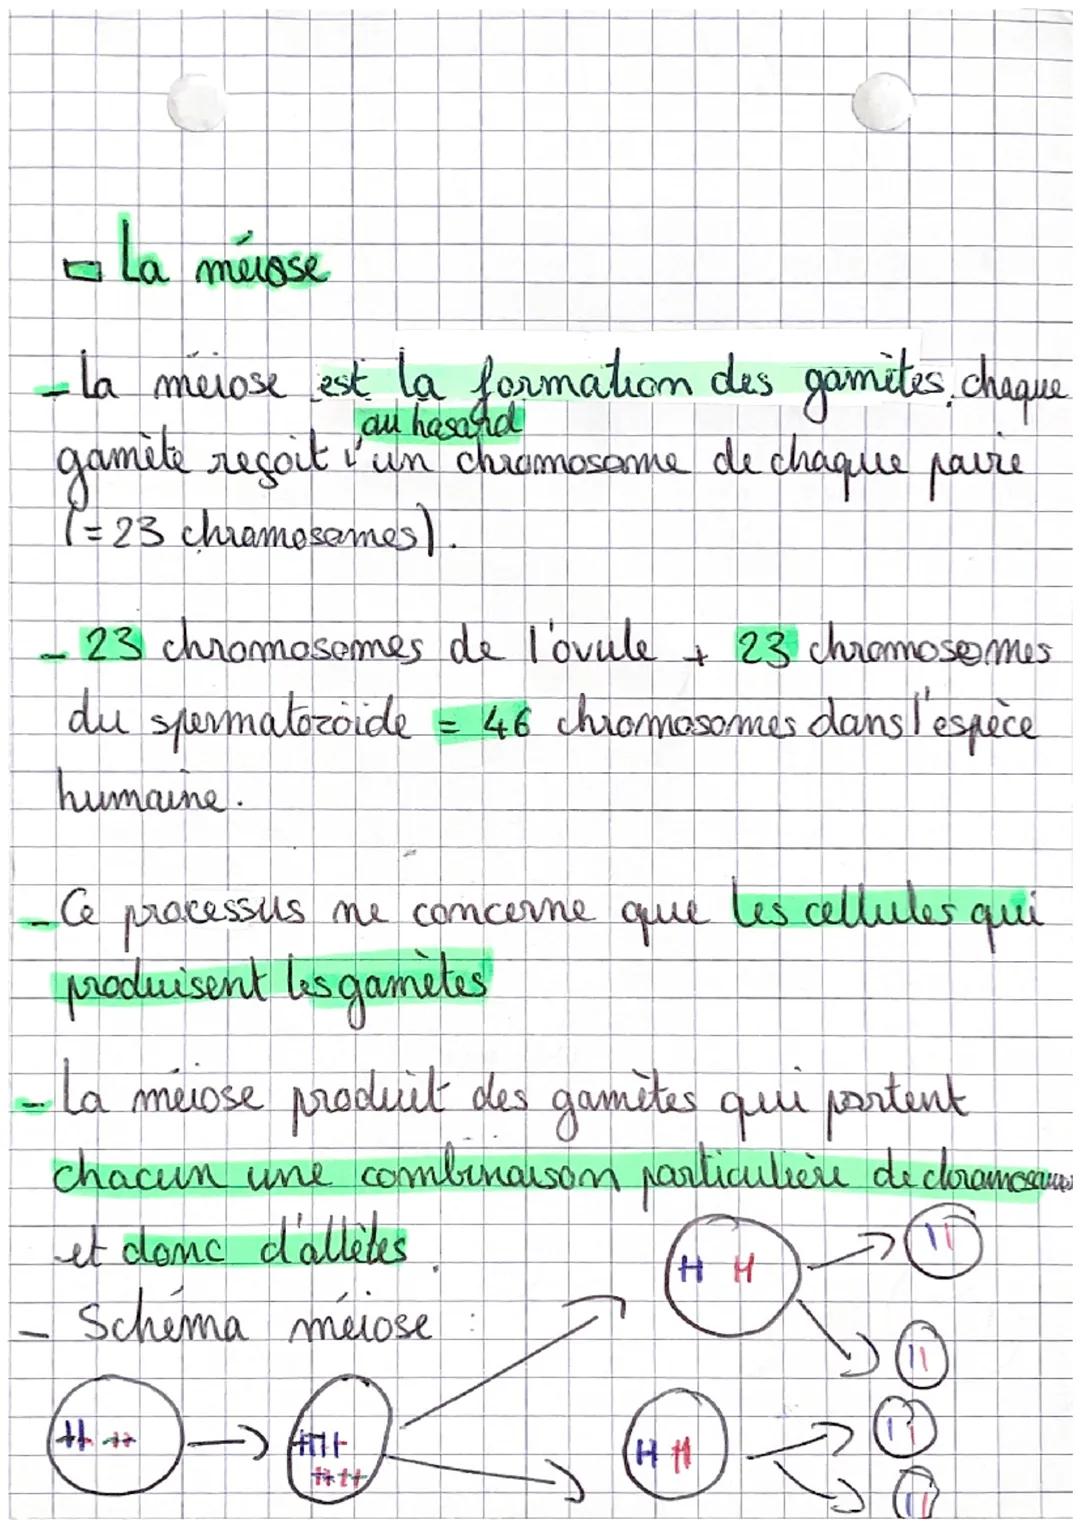 La méiose
- La méiose est la formation des gamètes, chaque
au hasard
gamète reçoit un chromosome de chaque paire
(= 23 chromosomes).
- 23 chromosomes de l'ovule + 23 chromosomes
du spermatozoïde = 46 chromosomes dans l'espèce
humaine.
- Ce processus ne concerne que les cellules qui
produisent les gamètes
- La méiose produit des gamètes qui portent
chacun une combinaison particulière de chromosomes
et donc d'allèles.
- Schéma méiose :